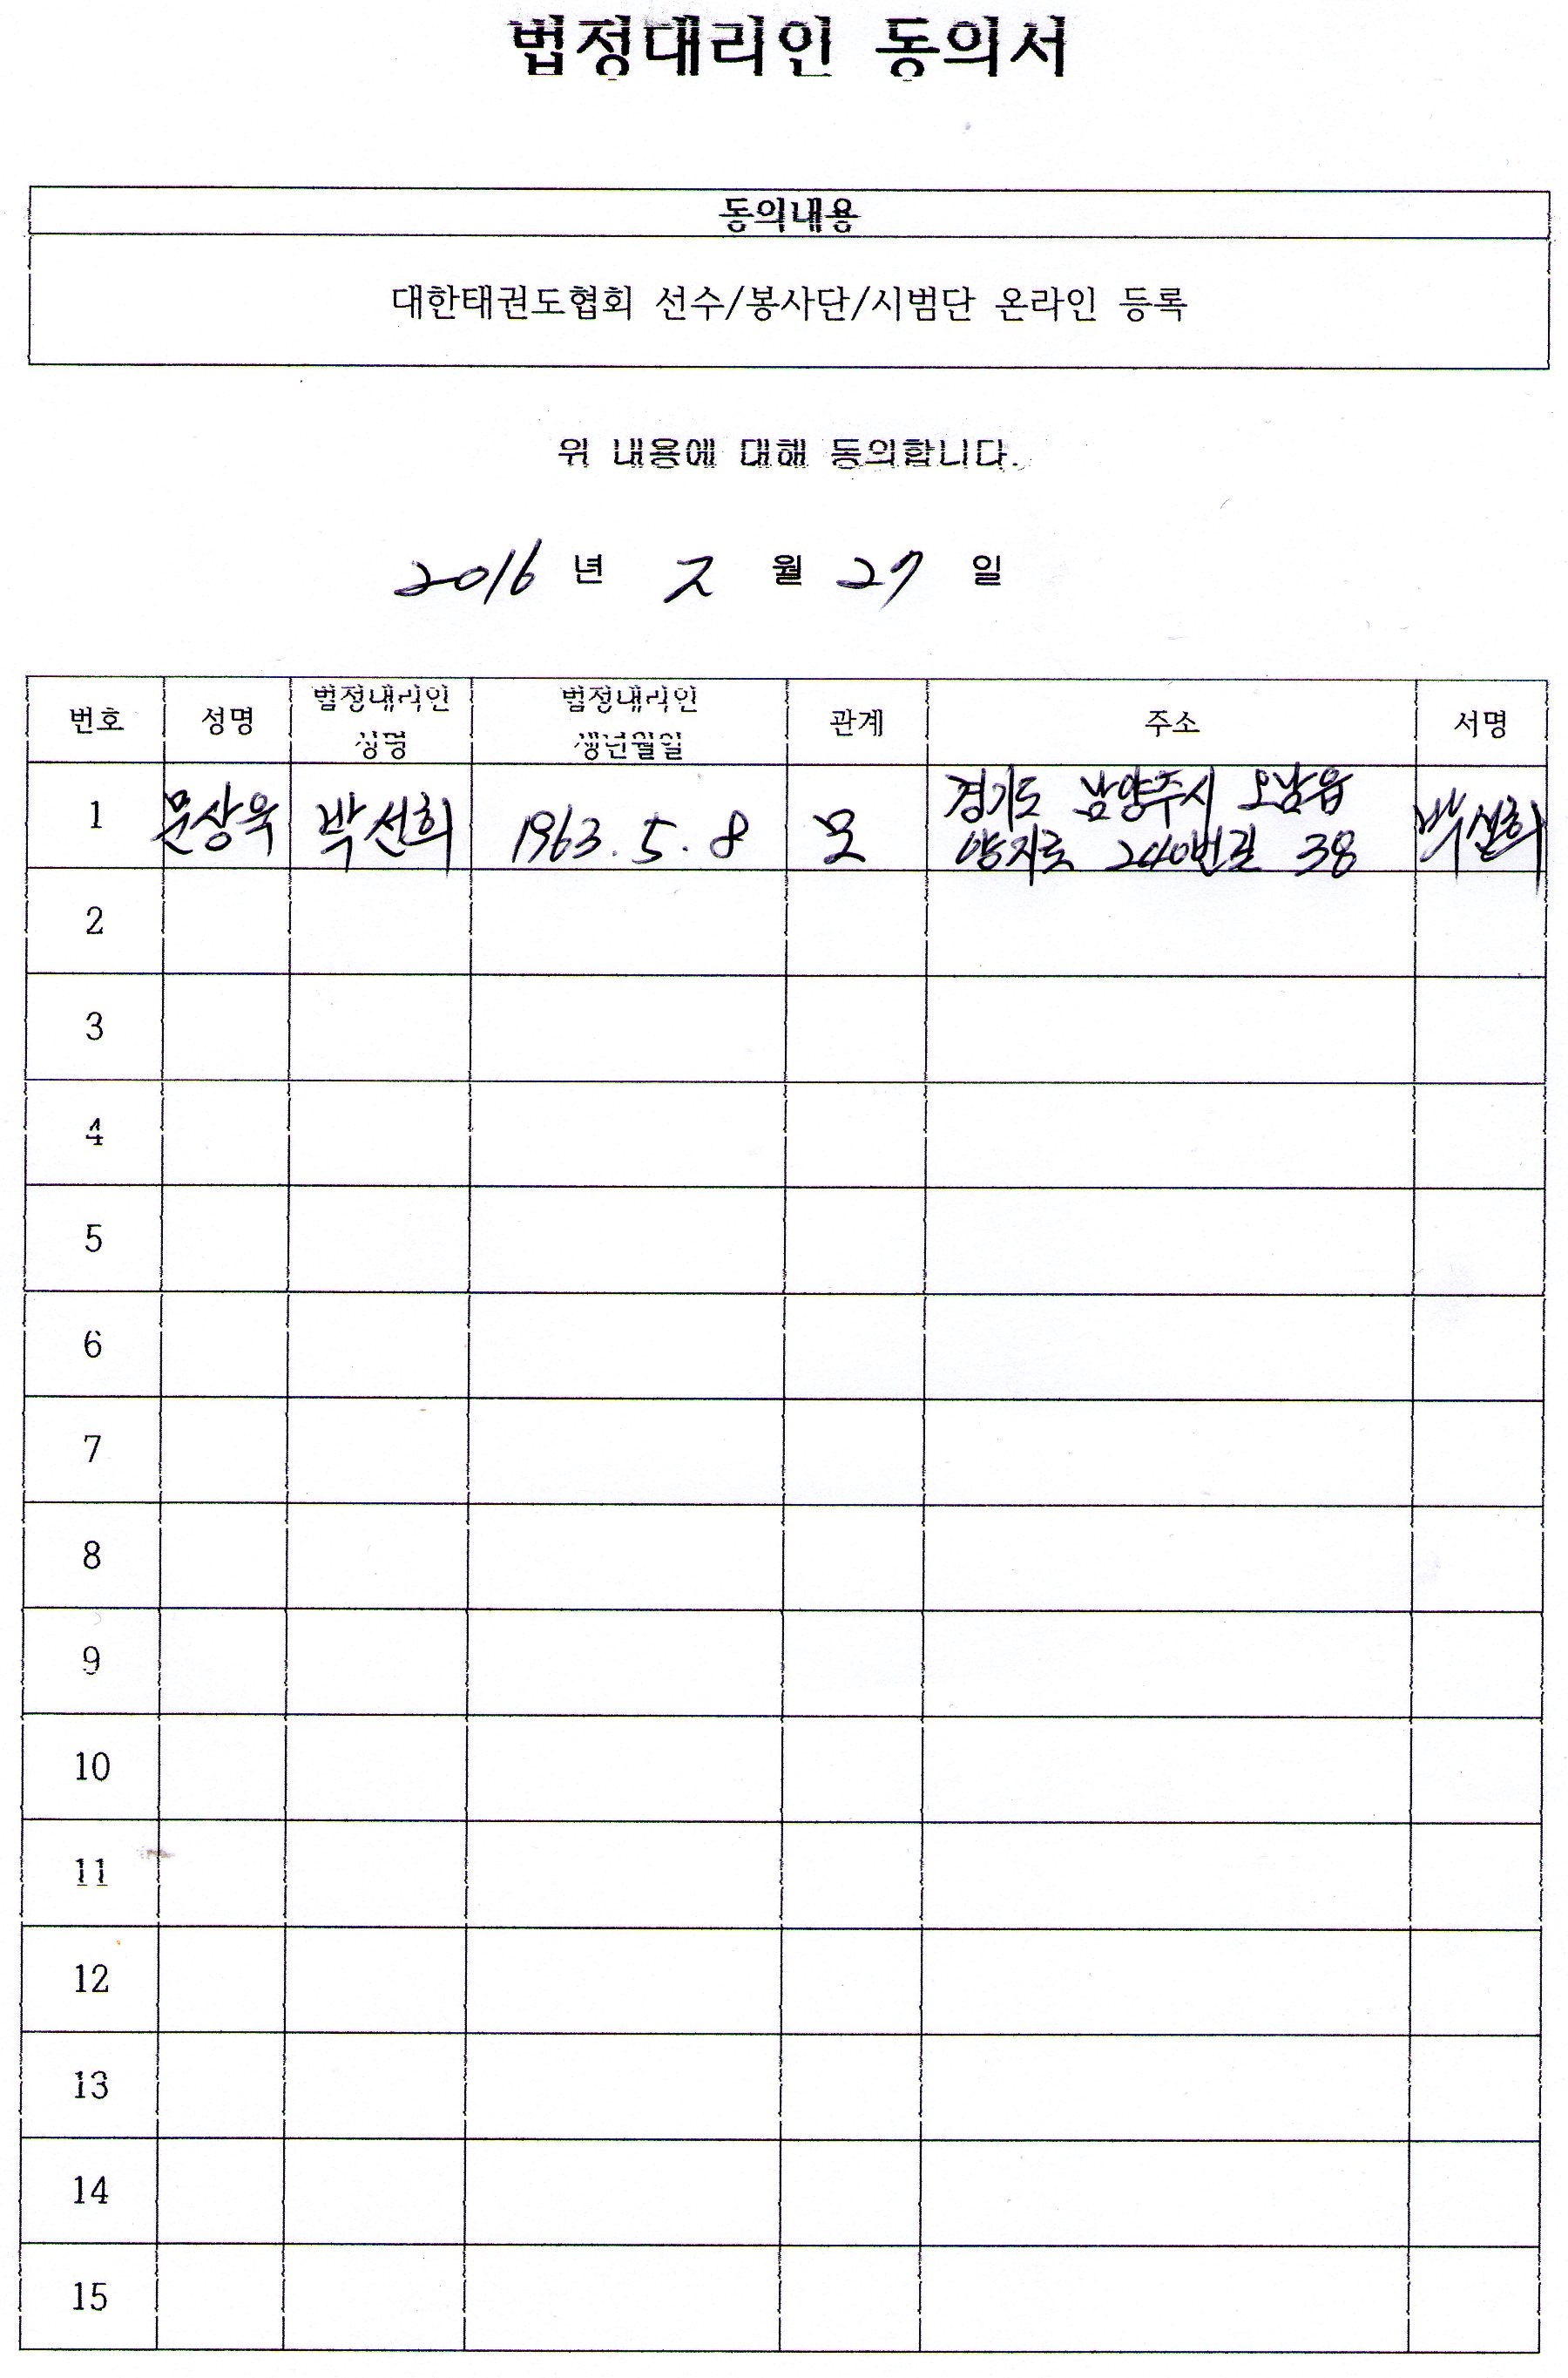 법정대리인 동의서
동의내용
대한태권도협회 선수/봉사단/시범단 온라인 등록
위 내용에 대해 동의합니다.
2016 년 2 월 27 일
번호 성명 법정대리인 성명 법정대리인 생년월일 관계 주소 서명
1 문상욱 박선희 1963. 5. 8 모 경기도 남양주시 오남읍 박선희
양지로 240번길 38
2
3
4
5
6
7
8
9
10
11
12
13
14
15